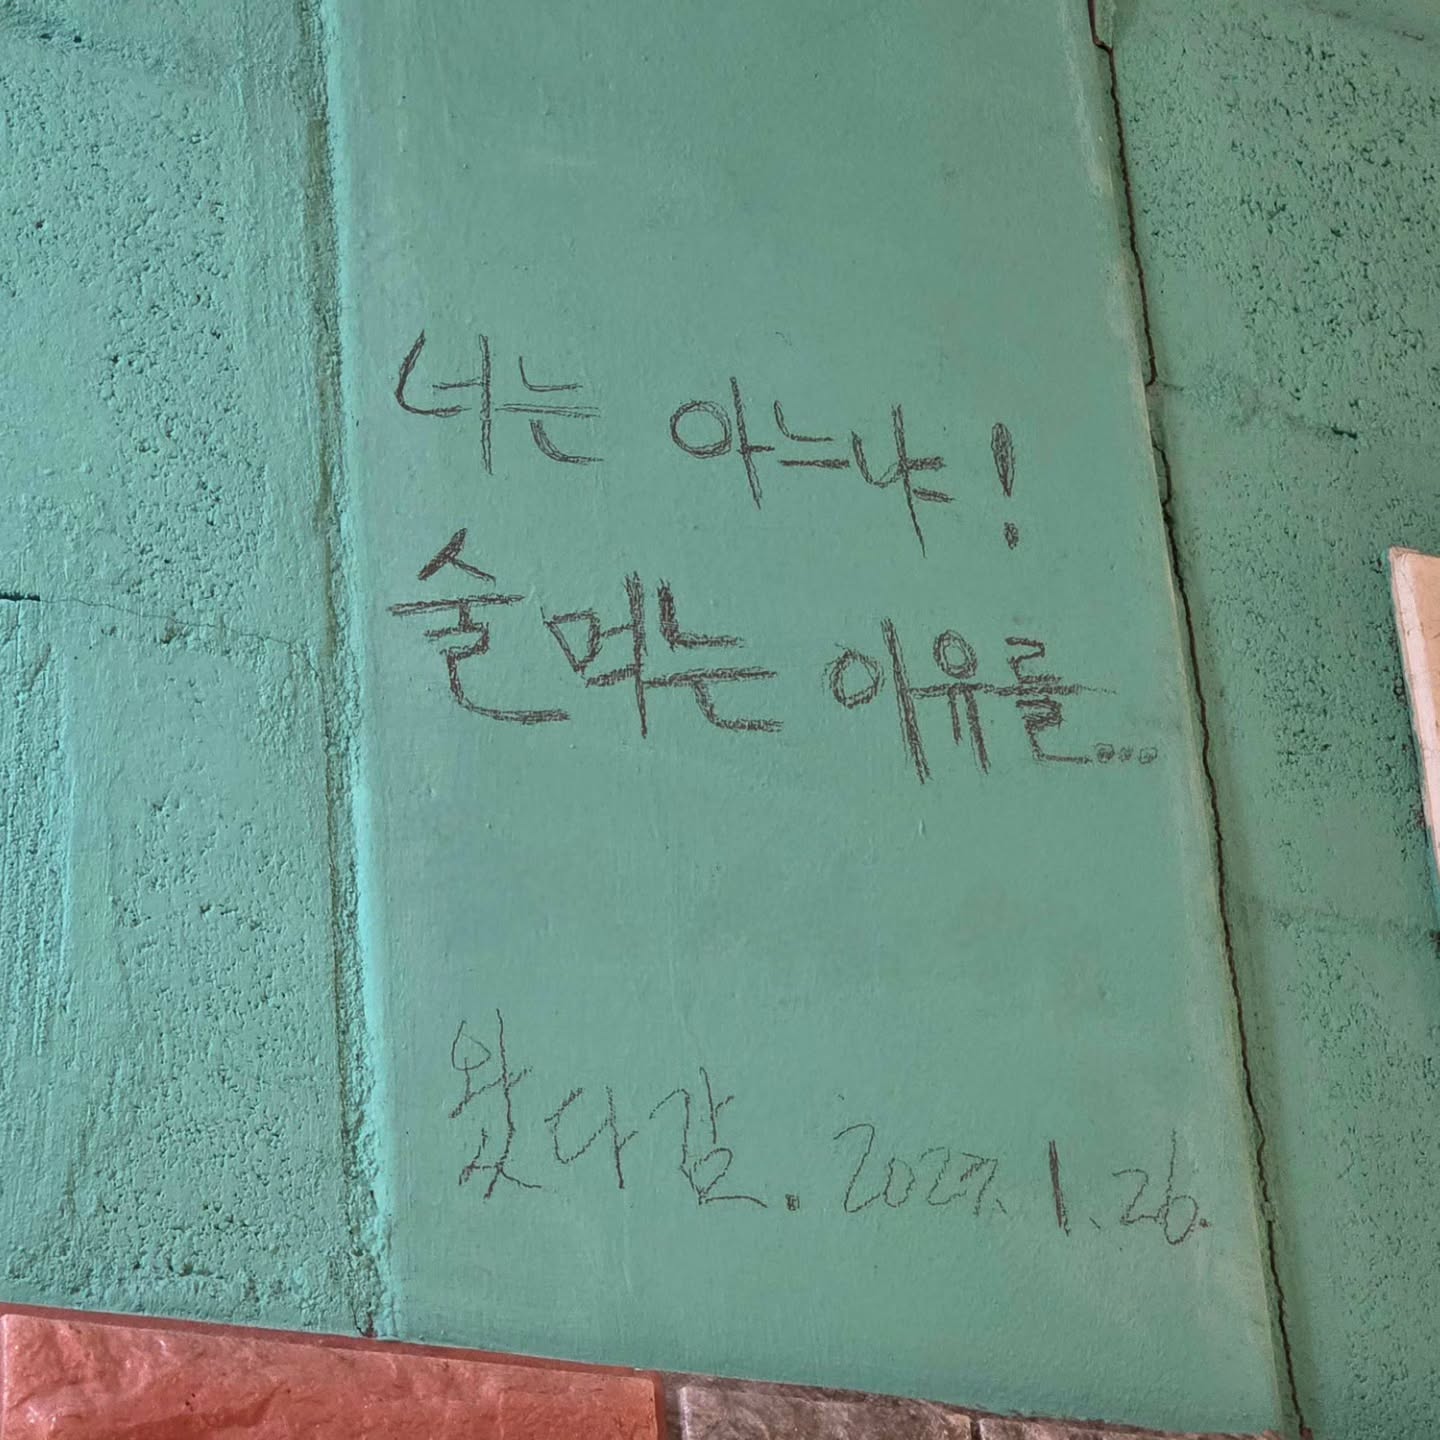 너는 아느냐!
술 먹는 이유를...
왔다감. 2027. 1. 26.